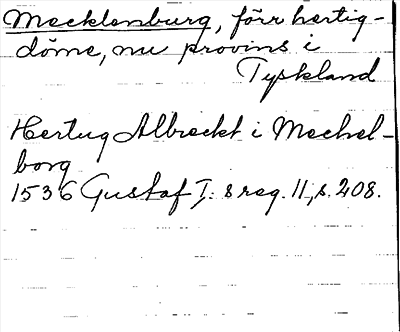 Mecklenburg, förr hertig-
döme, nu provins i
Tyskland
Hertug Albreckt i Meckel-
borg
1536 Gustaf I:s reg. 11, s. 208.